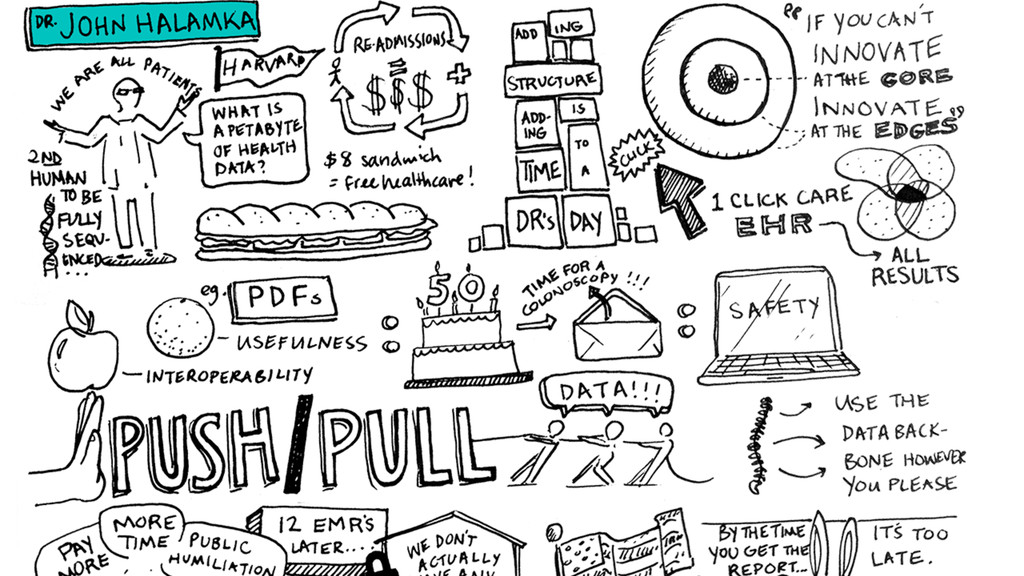 DR. JOHN HALAMKA
WE ARE ALL PATIENTS
HARVARD
WHAT IS
A PETABYTE
OF HEALTH
DATA?
2ND
HUMAN
TO BE
FULLY
SEQU-
ENCED
...
RE-ADMISSIONS
=
$$$
+
$8 sandwich
= free healthcare!
ADD
ING
STRUCTURE
ADD-
ING
IS
TIME
TO
A
DR's
DAY
CLICK
"IF YOU CAN'T
INNOVATE
AT THE CORE
INNOVATE
AT THE EDGES"
1 CLICK CARE
EHR
ALL
RESULTS
eg. PDFs
USEFULNESS
INTEROPERABILITY
50
TIME FOR A
COLONOSCOPY!!!
SAFETY
PUSH/PULL
DATA!!!
USE THE
DATA BACK-
BONE HOWEVER
YOU PLEASE
PAY
MORE
MORE
TIME
PUBLIC
HUMILIATION
12 EMR'S
LATER....
WE DON'T
ACTUALLY
BY THE TIME
YOU GET THE
REPORT...
IT'S TOO
LATE.